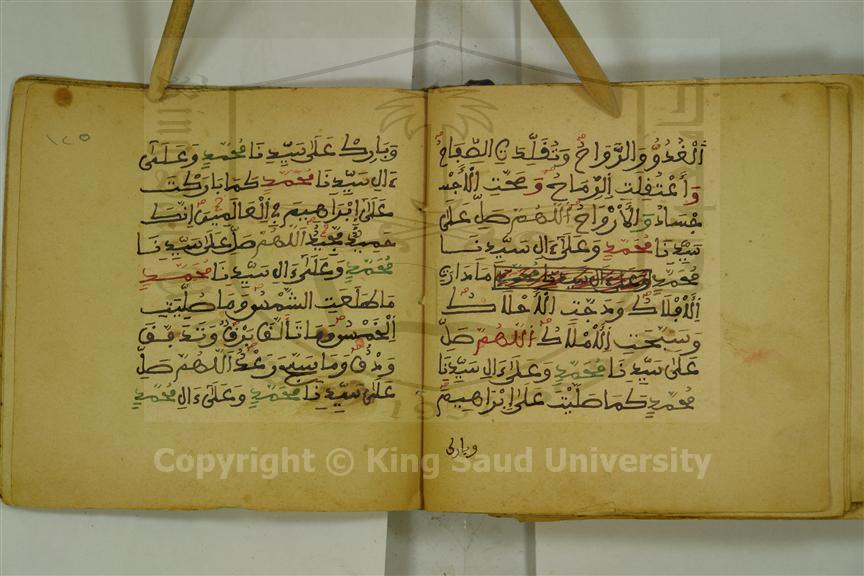 ٱلْغُدُوُّ وَالرَّوَاحُ وَتُقُلِّدَتِ الصِّفَاحُ
وَٱعْتُقِلَتِ الرِّمَاحُ وَصَحَّتِ الْأَجْ
سَادُ وَالْأَرْوَاحُ اللَّهُمَّ صَلِّ عَلَى
سَيِّدِنَا مُحَمَّدٍ وَعَلَى ءَالِ سَيِّدِنَا
مُحَمَّدٍ مَا دَارَتِ
الْأَفْلَاكُ وَدَجَتِ الْأَحْلَاكُ
وَسَبَّحَتِ الْأَمْلَاكُ اللَّهُمَّ صَلِّ
عَلَى سَيِّدِنَا مُحَمَّدٍ وَعَلَى ءَالِ سَيِّدِنَا
مُحَمَّدٍ كَمَا صَلَّيْتَ عَلَى إِبْرَاهِيمَ
وبارك
١٢٥
وَبَارِكْ عَلَى سَيِّدِنَا مُحَمَّدٍ وَعَلَى
ءَالِ سَيِّدِنَا مُحَمَّدٍ كَمَا بَارَكْتَ
عَلَى إِبْرَاهِيمَ فِي الْعَالَمِينَ إِنَّكَ
حَمِيدٌ مَجِيدٌ اللَّهُمَّ صَلِّ عَلَى سَيِّدِنَا
مُحَمَّدٍ وَعَلَى ءَالِ سَيِّدِنَا مُحَمَّدٍ
مَا طَلَعَتِ الشَّمْسُ وَمَا صُلِّيَتِ
الْخَمْسُ وَمَا تَأَلَّقَ بَرْقٌ وَتَدَفَّقَ
وَدْقٌ وَمَا سَبَّحَ رَعْدٌ اللَّهُمَّ صَلِّ
عَلَى سَيِّدِنَا مُحَمَّدٍ وَعَلَى ءَالِ مُحَمَّدٍ
Copyright © King Saud University